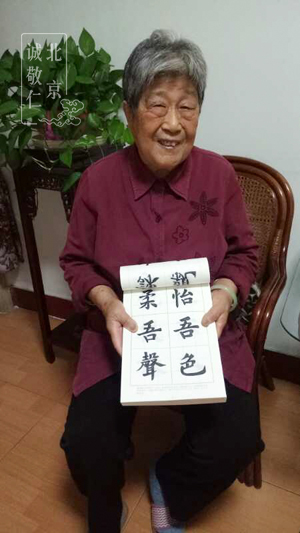 北京
诚敬仁
怡吾色
柔吾聲